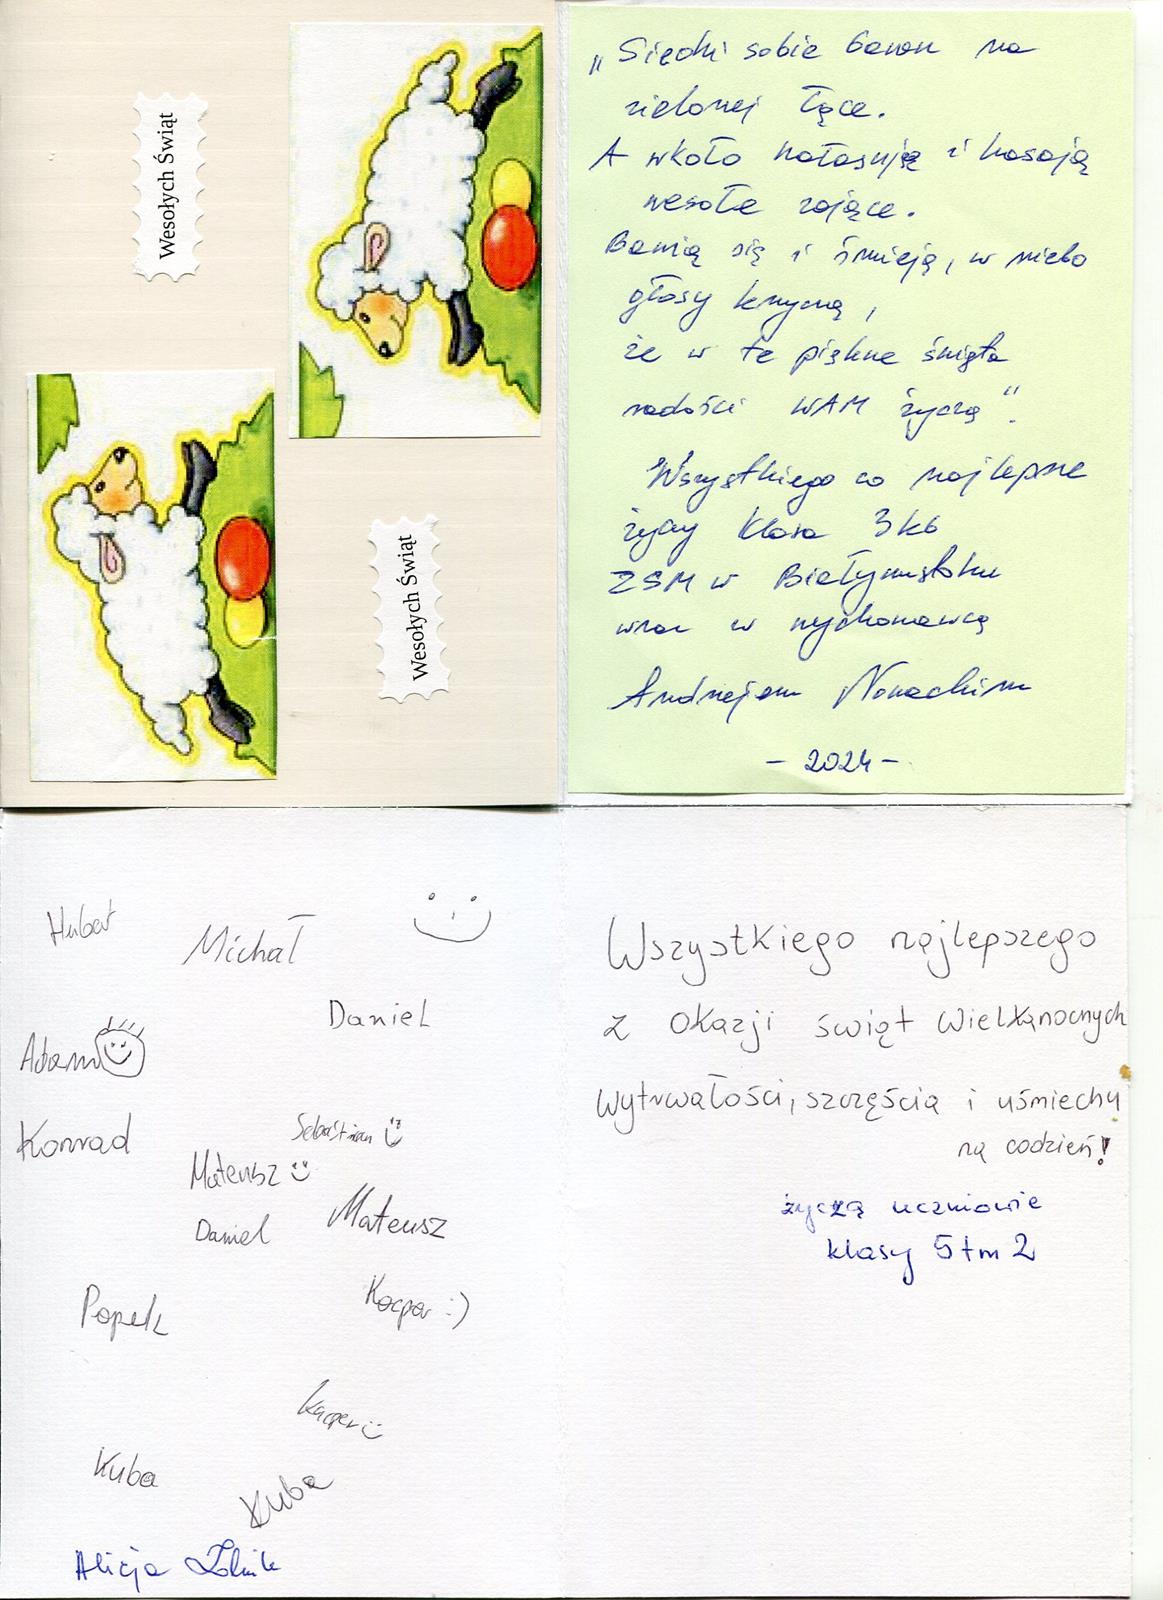 Wesołych Świąt
Wesołych Świąt
„Siedzi sobie baran na
zielonej łące.
A wkoło hałasują i hasają
wesołe zające.
Bawią się i śmieją, w niebo
głosy krzyczą,
że w te piękne święta
radości WAM życzą".
Wszystkiego co najlepsze
życzy klasa 3k6
ZSM w Białymstoku
wraz w wychowawcą
Andrzejem Nowackim
- 2024 -
Hubert
Michał
Daniel
Adam
Konrad
Sebastian
Mateusz
Daniel
Mateusz
Popek
Kacper :)
Kacper
Kuba
Kuba
Alicja
Wszystkiego najlepszego
z okazji świąt Wielkanocnych
wytrwałości, szczęścia i uśmiechu
na codzień!
życzą uczniowie
klasy 5tm2